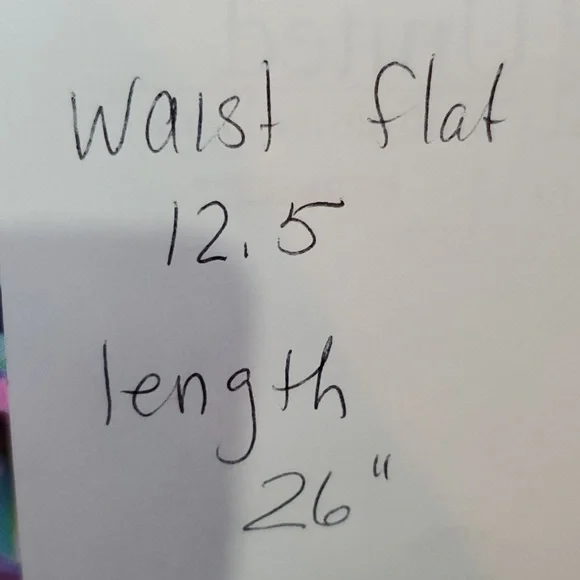 Waist flat
12.5
length
26"